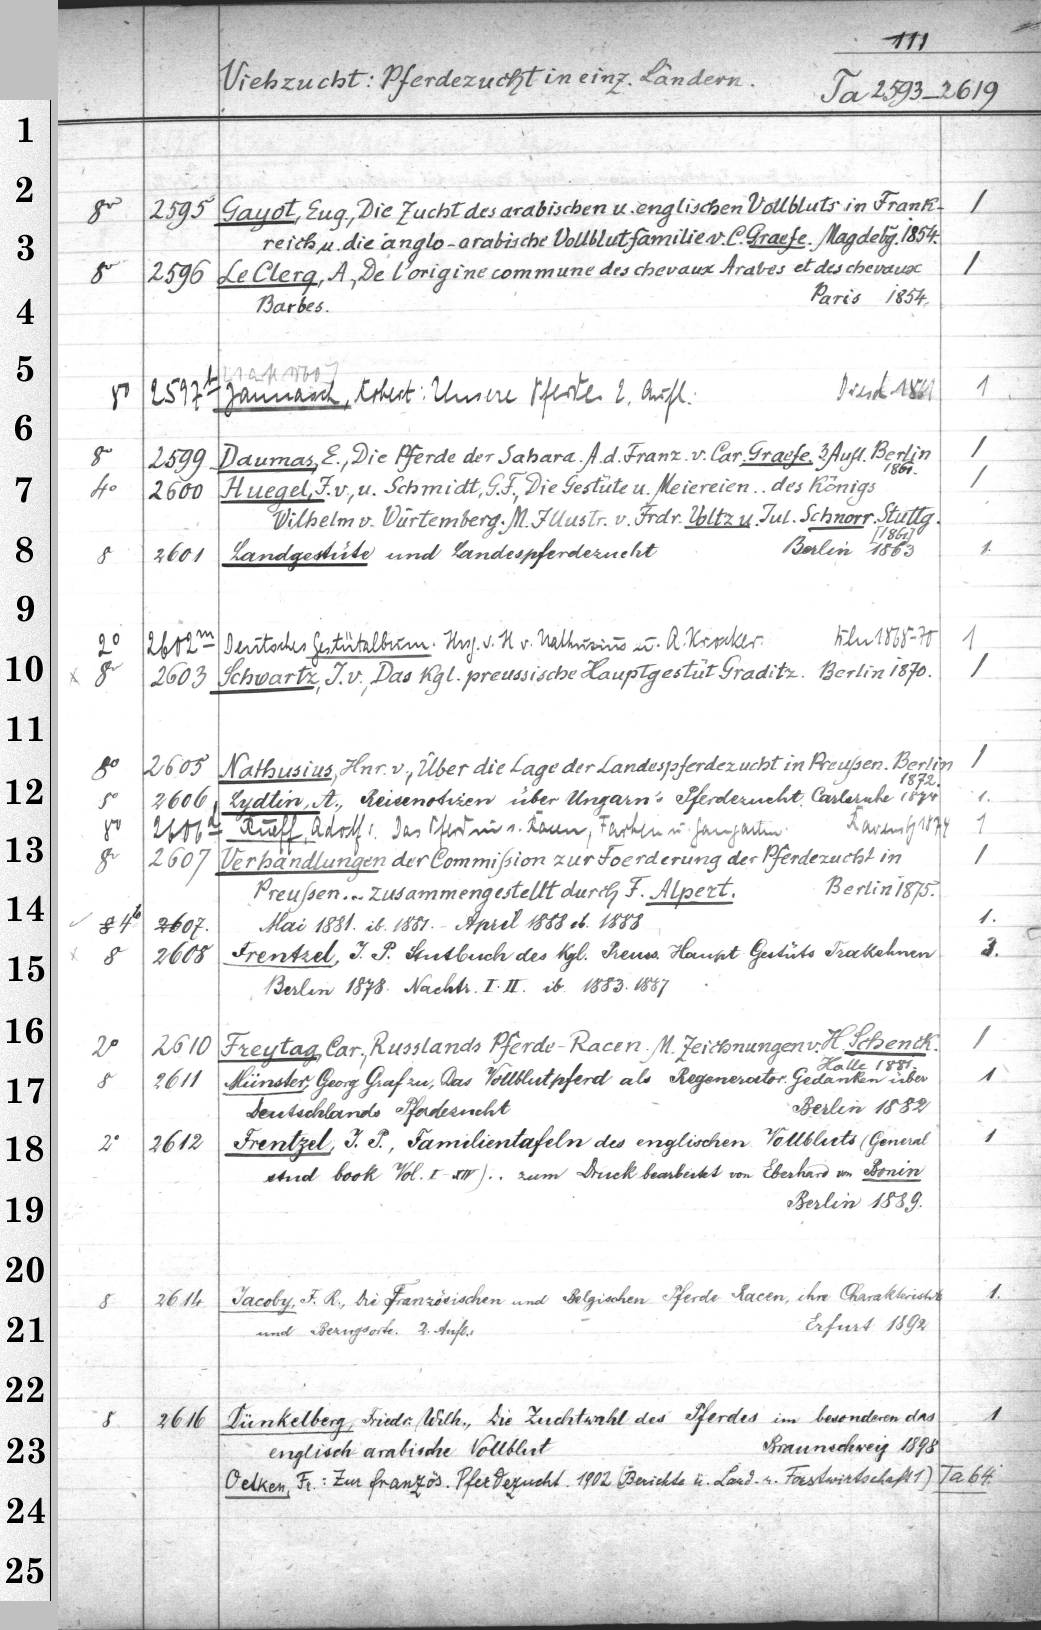 111
Viehzucht: Pferdezucht in einz. Ländern. Ta 2593-2619
1
2
8o 2595 Gayot, Eug., Die Zucht des arabischen u. englischen Vollbluts in Frank- 1
3
reich u. die anglo-arabische Vollblutfamilie v. C. Graefe. Magdebg. 1854.
8o 2596 Le Clerq, A., De l'origine commune des chevaux Arabes et des chevaux 1
4
Barbes. Paris 1854.
5
8o 2597 Jannasch, Robert: Unsere Pferde 2. Aufl. 1861 1
6
8o 2599 Daumas, E., Die Pferde der Sahara. A. d. Franz. v. Car. Graefe. 3 Aufl. Berlin 1
1861.
7
4o 2600 Huegel, F. v., u. Schmidt, G. F., Die Gestüte u. Meiereien .. des Königs 1
Wilhelm v. Würtemberg. M. Illustr. v. Frdr. Voltz u. Jul. Schnorr. Stuttg.
[1861]
8
8 2601 Landgestüte und Landespferdezucht Berlin 1863 1.
9
2o 2602m Deutsches Gestütalbum. Hrsg. v. H v. Nathusius u. A. Krocker. 1868-70 1
10
x 8o 2603 Schwartz, J. v., Das Kgl. preussische Hauptgestüt Graditz. Berlin 1870. 1
11
8o 2605 Nathusius, Hnr. v., Über die Lage der Landespferdezucht in Preußen. Berlin 1
1872.
12
8o 2606 Lydtin, A., Reisenotizen über Ungarn's Pferdezucht. Carlsruhe 1.
8o 2606 Rueff, Adolf: Das Pferd Farben u. Gangarten. Ravensbg 1874 1
13
8o 2607 Verhandlungen der Commißion zur Foerderung der Pferdezucht in 1
Preußen... zusammengestellt durch F. Alpert. Berlin 1875.
14
4o 2607. Mai 1881. ib. 1881. - April 1888 ib. 1888 1.
15
x 8 2608 Frentzel, J. P. Stutbuch des Kgl. Preuss. Haupt Gestüts Trakehnen 3.
Berlin 1878. Nachtr. I. II. ib. 1883. 1887
16
2o 2610 Freytag, Car., Russlands Pferde-Racen. M. Zeichnungen v. H. Schenck. 1
Halle 1881.
17
8 2611 Münster, Georg Graf zu, Das Vollblutpferd als Regenerator. Gedanken über 1
Deutschlands Pferdezucht Berlin 1882
18
2o 2612 Frentzel, J. P., Familientafeln des englischen Vollbluts (General 1
stud book Vol. I-XIV) .. zum Druck bearbeitet von Eberhard von Bonin
19
Berlin 1889.
20
8 2614 Jacoby, F. R., Die Französischen und Belgischen Pferde Racen, ihre Charakteristik 1.
21
und Bezugsorte. 2. Aufl. Erfurt 1892
22
8 2616 Dünkelberg, Friedr. Wilh., Die Zuchtwahl des Pferdes im besonderen das 1
23
englisch arabische Vollblut Braunschweig 1898
Oetken, Fr.: Zur französ. Pferdezucht. 1902 (Berichte ü. Land- u. Forstwirtschaft 1) Ta 64.
24
25